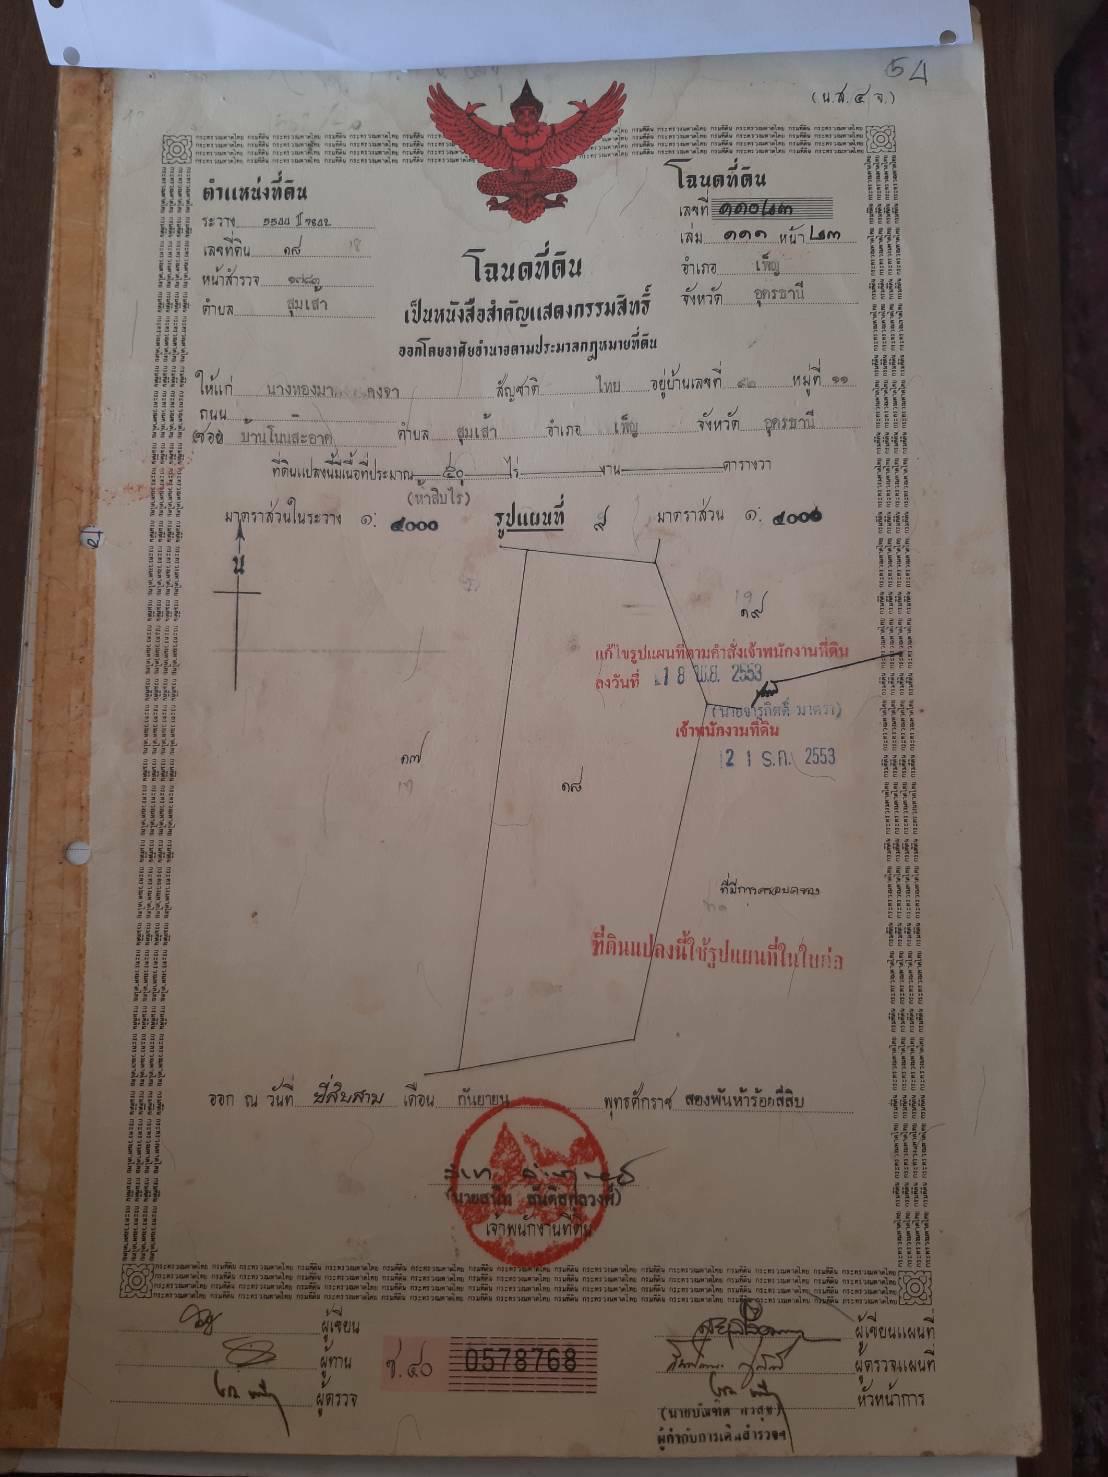 54
(น.ส.๔ จ.)
ตำแหน่งที่ดิน
ระวาง 5544 II 7842
เลขที่ดิน ๑๘ 18
หน้าสำรวจ ๑๗๘๓
ตำบล สุมเส้า
โฉนดที่ดิน
เลขที่ ๑๑๐๒๓
เล่ม ๑๑๑ หน้า ๒๓
อำเภอ เพ็ญ
จังหวัด อุดรธานี
โฉนดที่ดิน
เป็นหนังสือสำคัญแสดงกรรมสิทธิ์
ออกโดยอาศัยอำนาจตามประมวลกฎหมายที่ดิน
ให้แก่ นางทองมา คงจา สัญชาติ ไทย อยู่บ้านเลขที่ หมู่ที่ ๑๑
ถนน
(ซอย) บ้านโนนสะอาด ตำบล สุมเส้า อำเภอ เพ็ญ จังหวัด อุดรธานี
ที่ดินแปลงนี้มีเนื้อที่ประมาณ ๕๐ ไร่ งาน ตารางวา
(ห้าสิบไร่)
มาตราส่วนในระวาง ๑: ๔๐๐๐ รูปแผนที่ มาตราส่วน ๑: ๔๐๐๐
น
19
๑๙
แก้ไขรูปแผนที่ตามคำสั่งเจ้าพนักงานที่ดิน
ลงวันที่ 18 พ.ย. 2553
(นายจารุกิตติ์ มาตรา)
เจ้าพนักงานที่ดิน
21 ธ.ค. 2553
๑๗
๑๘
ที่มีการครอบครอง
ที่ดินแปลงนี้ใช้รูปแผนที่ในใบต่อ
ออก ณ วันที่ ยี่สิบสาม เดือน กันยายน พุทธศักราช สองพันห้าร้อยสี่สิบ
เจ้าพนักงานที่ดิน
ผู้เขียน
ผู้ทาน
ผู้ตรวจ
ช.๔๐ 0578768
ผู้เขียนแผนที่
ผู้ตรวจแผนที่
หัวหน้าการ
ผู้กำกับการเดินสำรวจฯ